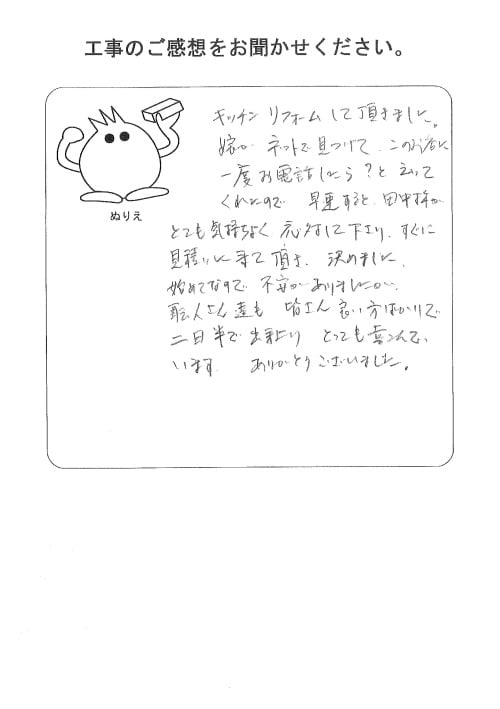 工事のご感想をお聞かせください。
キッチンリフォームして頂きました。
嫁がネットで見つけて、このお店に
一度お電話したら？と云って
くれたので 早速すると、田中様が
ぬりえ
とても気持ちよく 応対して下さり、すぐに
見積りに来て頂き、決めました。
始めてなので 不安がありましたが、
職人さん達も 皆さん良い方ばかりで
二日半で出来上り とっても喜こんで、
います。 ありがとうございました。